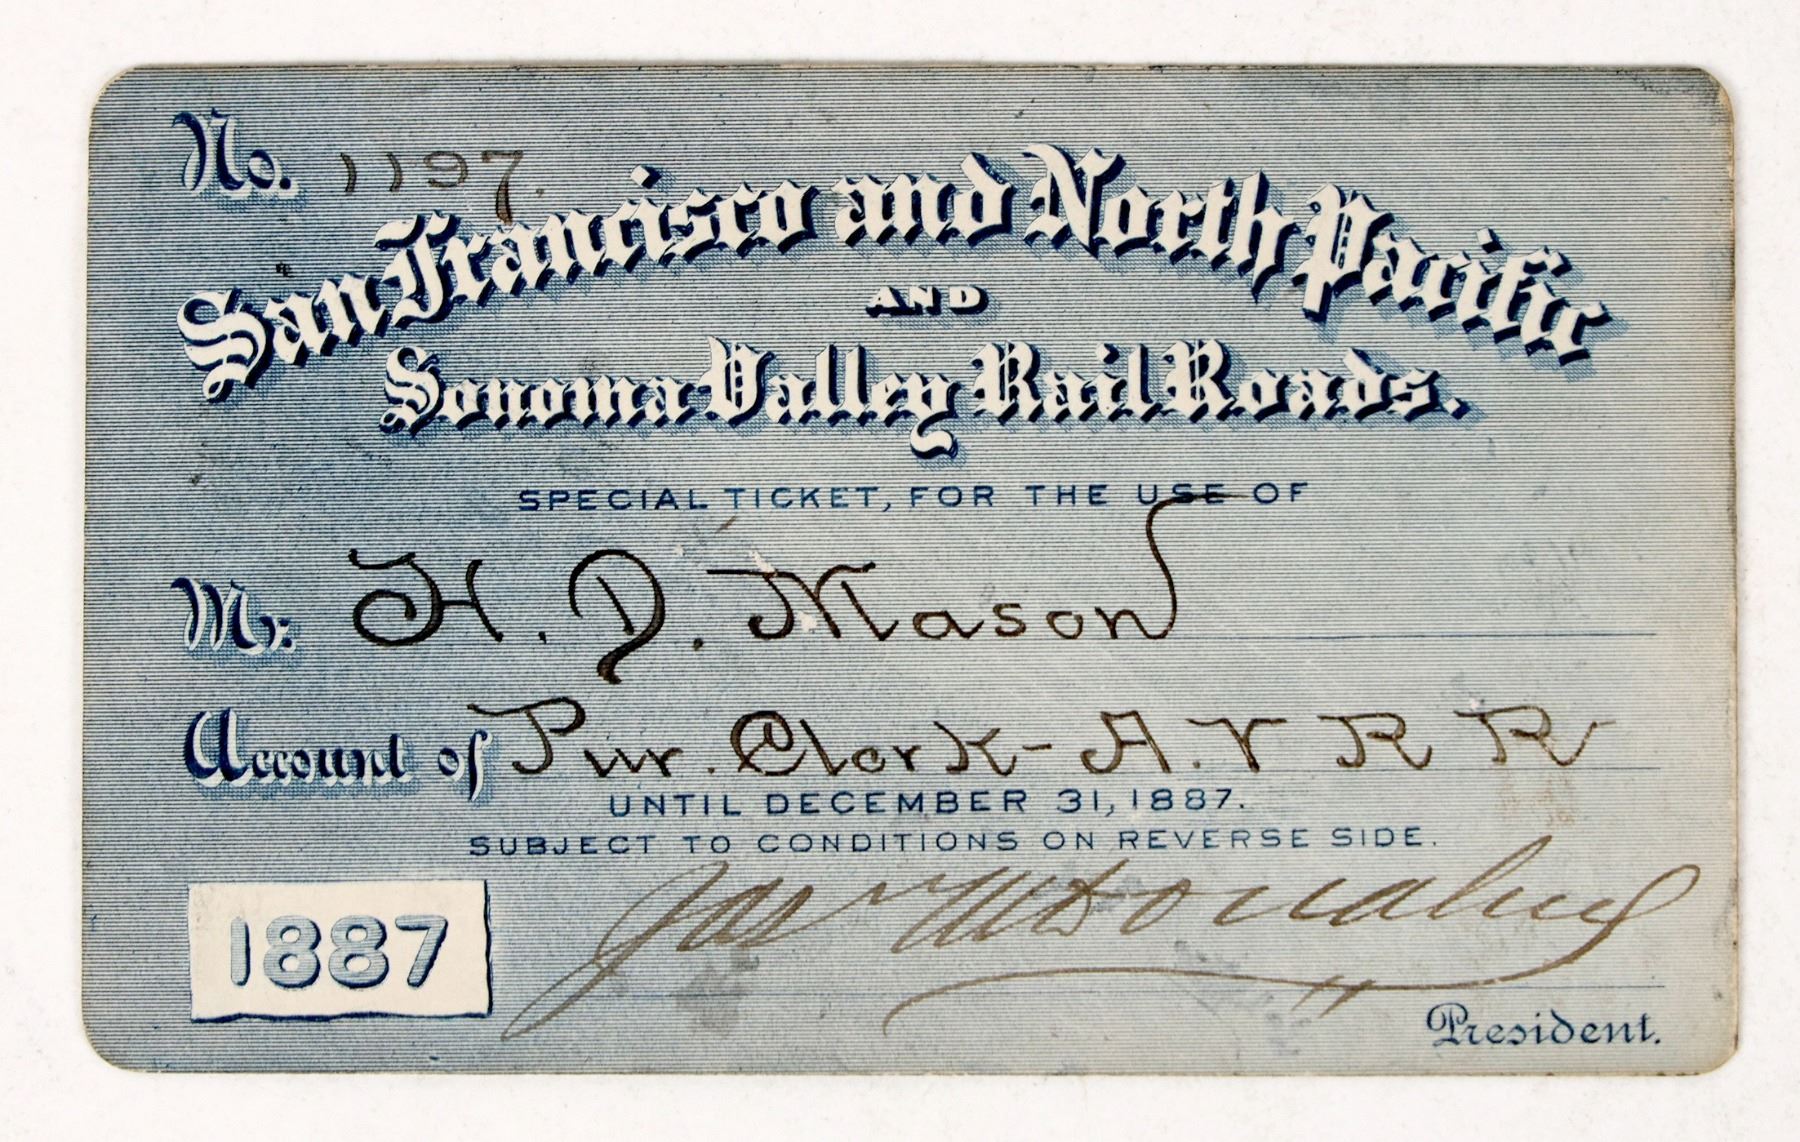 No. 1197.
San Francisco and North Pacific
AND
Sonoma Valley Rail Roads.
SPECIAL TICKET, FOR THE USE OF
Mr. H. D. Mason
Account of Pur. Clerk - A. V R R
UNTIL DECEMBER 31, 1887.
SUBJECT TO CONDITIONS ON REVERSE SIDE.
Jas McDonahue
1887
President.